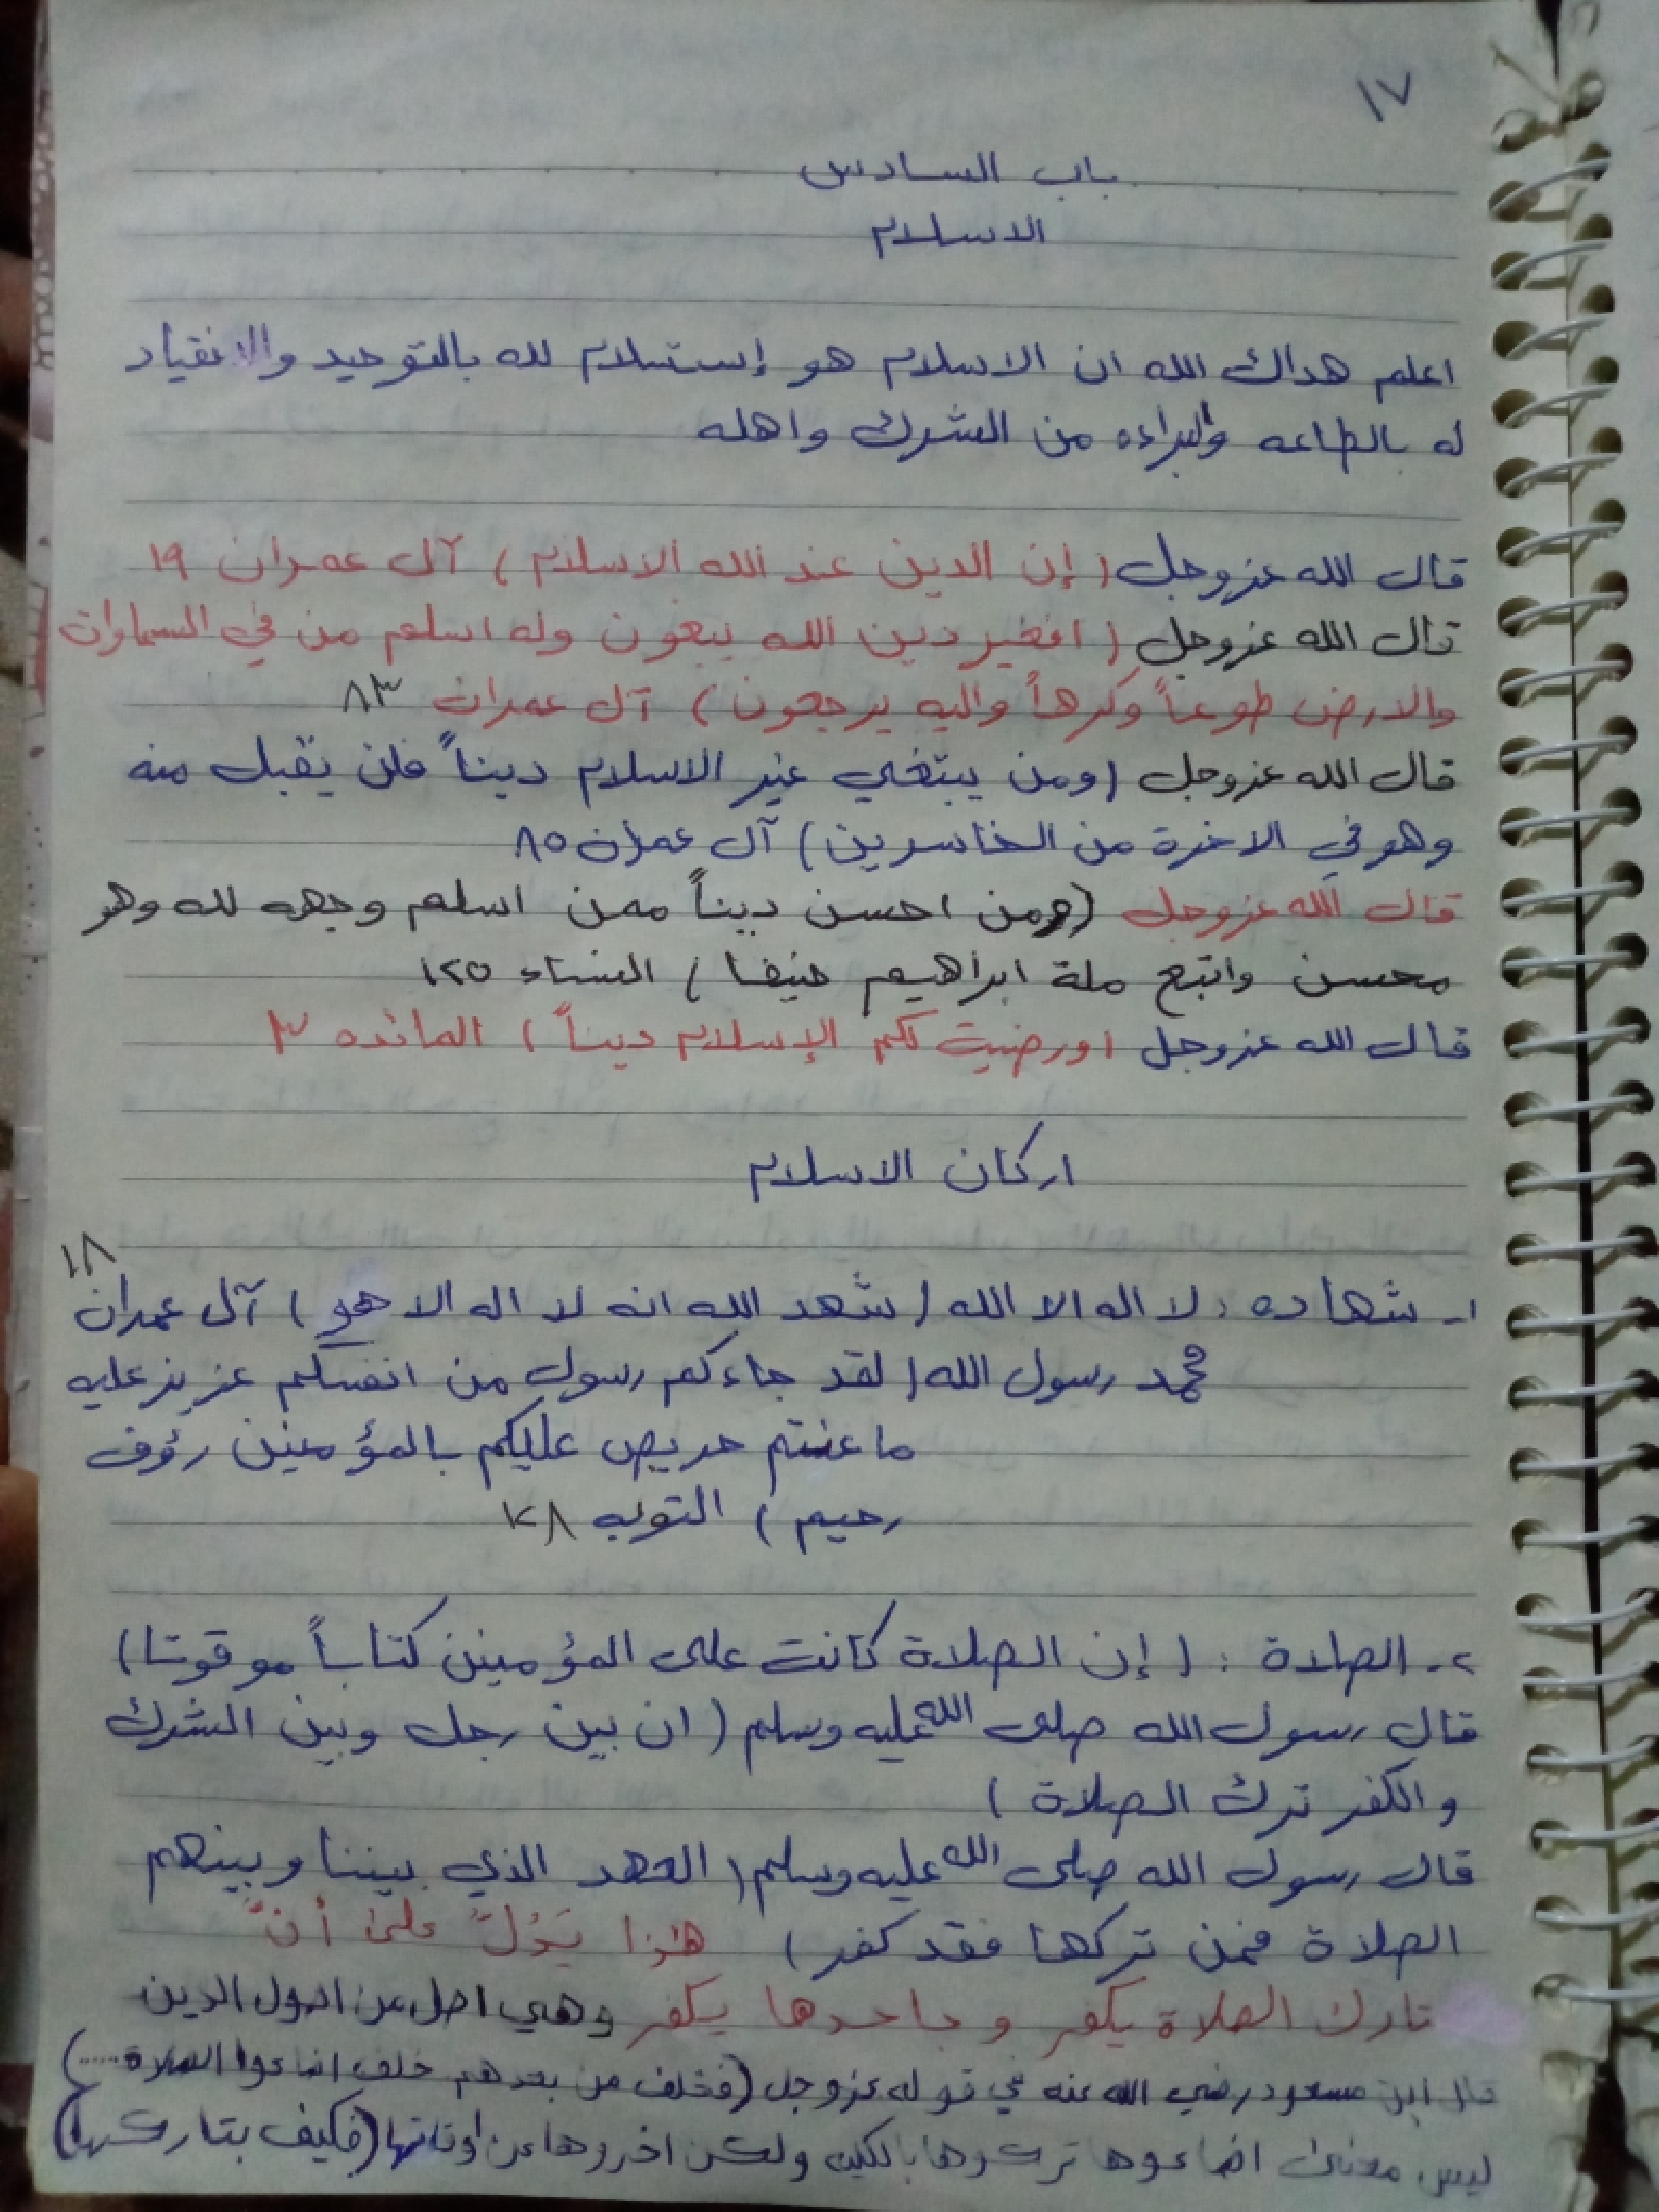 ١٧
باب السادس
الاسلام
اعلم هداك الله ان الاسلام هو إستسلام لله بالتوحيد والانقياد
له بالطاعه والبراءه من الشرك واهله
قال الله عزوجل (إن الدين عند الله الاسلام) آل عمران ١٩
قال الله عزوجل (افغير دين الله يبغون وله اسلم من في السماوات
والارض طوعاً وكرهاً واليه يرجعون) آل عمران ٨٣
قال الله عزوجل (ومن يبتغي غير الاسلام ديناً فلن يقبل منه
وهو في الاخرة من الخاسرين) آل عمران ٨٥
قال الله عزوجل (ومن احسن ديناً ممن اسلم وجهه لله وهو
محسن واتبع ملة ابراهيم حنيفا) النساء ١٢٥
قال الله عزوجل (ورضيت لكم الإسلام ديناً) المائده ٣
اركان الاسلام
١- شهاده: لا اله الا الله (شهد الله انه لا اله الا هو) آل عمران ١٨
محمد رسول الله (لقد جاءكم رسول من انفسكم عزيز عليه
ما عنتم حريص عليكم بالمؤمنين رؤوف
رحيم) التوبه ١٢٨
٢- الصلاة: (إن الصلاة كانت على المؤمنين كتاباً موقوتا)
قال رسول الله صلى الله عليه وسلم (ان بين رجل وبين الشرك
والكفر ترك الصلاة)
قال رسول الله صلى الله عليه وسلم (العهد الذي بيننا وبينهم
الصلاة فمن تركها فقد كفر) هذا يَدُلُّ على أنَّ
تارك الصلاة يكفر و جاحدها يكفر وهي اصل من اصول الدين
قال ابن مسعود رضي الله عنه في قوله عزوجل (فخلف من بعدهم خلف اضاعوا الصلاة.....)
ليس معنى اضاعوها تركوها بالكليه ولكن اخروها عن اوقاتها (فكيف بتاركها)